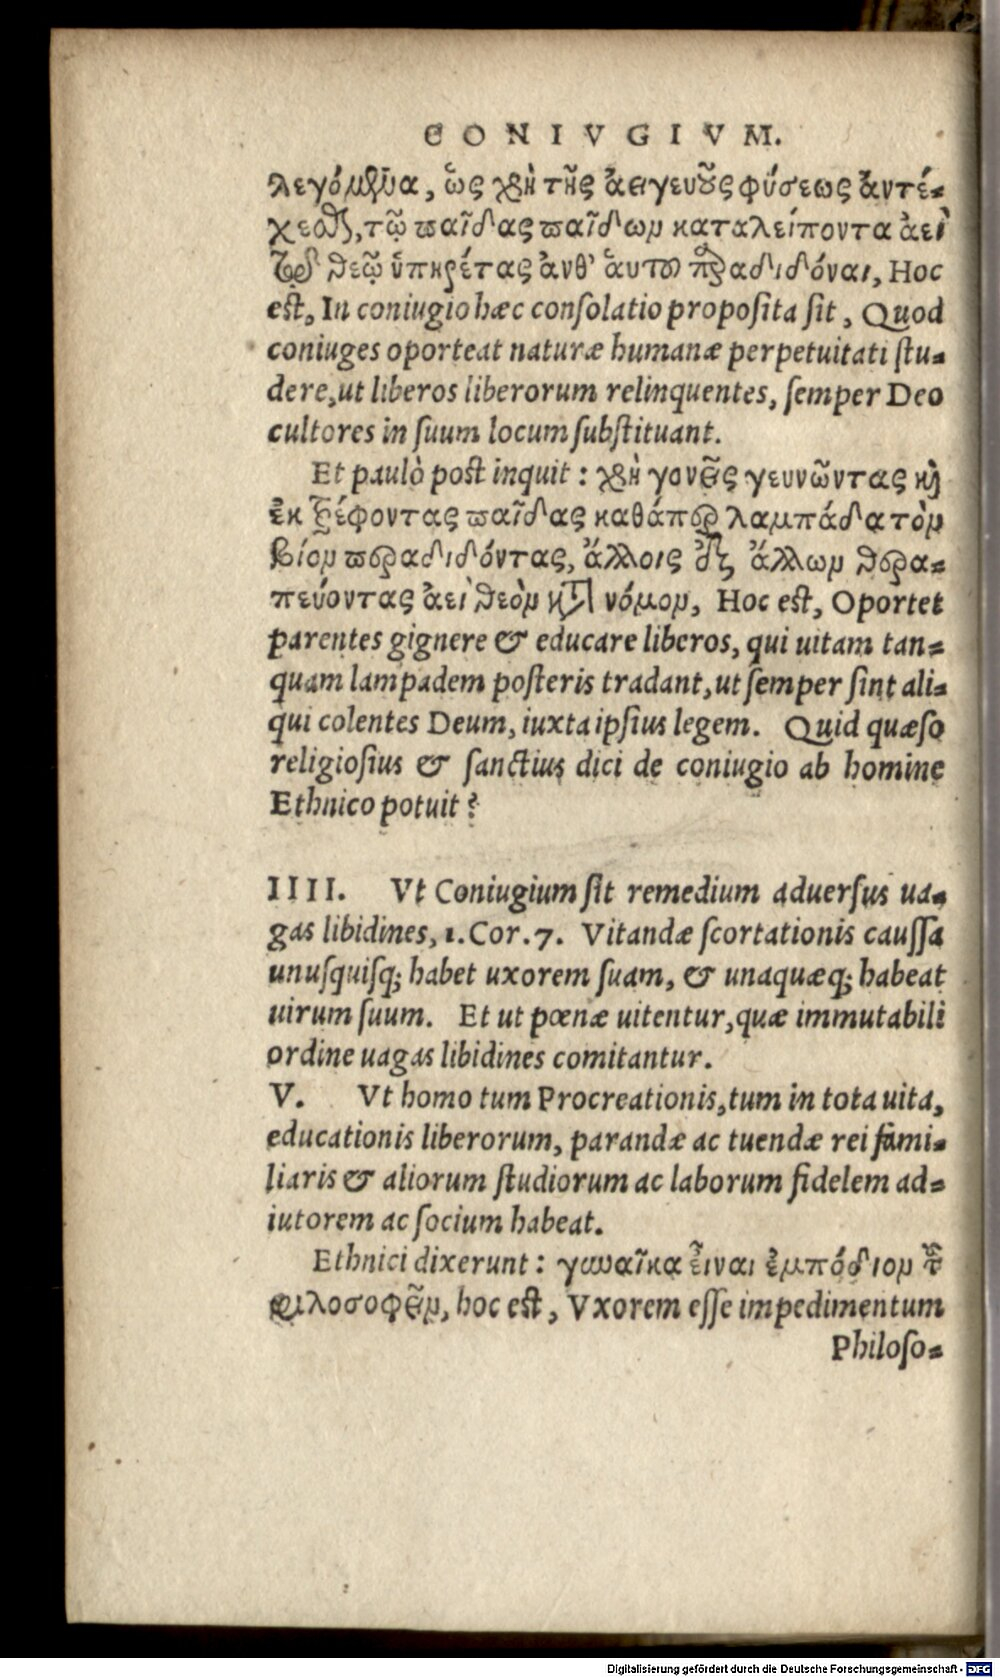 CONIVGIVM.
λεγόμενα, ὡς χρὴ τῆς ἀειγενοῦς φύσεως ἀντέ-
χεσθαι, τῷ παῖδας παίδων καταλείποντα ἀεὶ
τῷ θεῷ ὑπηρέτας ἀνθ' αὑτοῦ παραδιδόναι, Hoc
est, In coniugio hæc consolatio proposita sit, Quod
coniuges oporteat naturæ humanæ perpetuitati stu-
dere, ut liberos liberorum relinquentes, semper Deo
cultores in suum locum substituant.
Et paulò post inquit: χρὴ γονεῖς γεννῶντας καὶ
ἐκτρέφοντας παῖδας καθάπερ λαμπάδα τὸν
βίον παραδιδόντας, ἄλλοις ἐξ ἄλλων θερα-
πεύοντας ἀεὶ θεὸν κατὰ νόμον, Hoc est, Oportet
parentes gignere & educare liberos, qui uitam tan-
quam lampadem posteris tradant, ut semper sint ali-
qui colentes Deum, iuxta ipsius legem. Quid quæso
religiosius & sanctius dici de coniugio ab homine
Ethnico potuit?
IIII. Vt Coniugium sit remedium aduersus ua-
gas libidines, 1. Cor. 7. Vitandæ scortationis caussa
unusquisq; habet uxorem suam, & unaquæq; habeat
uirum suum. Et ut pœnæ uitentur, quæ immutabili
ordine uagas libidines comitantur.
V. Vt homo tum Procreationis, tum in tota uita,
educationis liberorum, parandæ ac tuendæ rei fami-
liaris & aliorum studiorum ac laborum fidelem ad-
iutorem ac socium habeat.
Ethnici dixerunt: γυναῖκα εἶναι ἐμπόδιον τοῦ
φιλοσοφεῖν, hoc est, Vxorem esse impedimentum
Philoso-
Digitalisierung gefördert durch die Deutsche Forschungsgemeinschaft - DFG